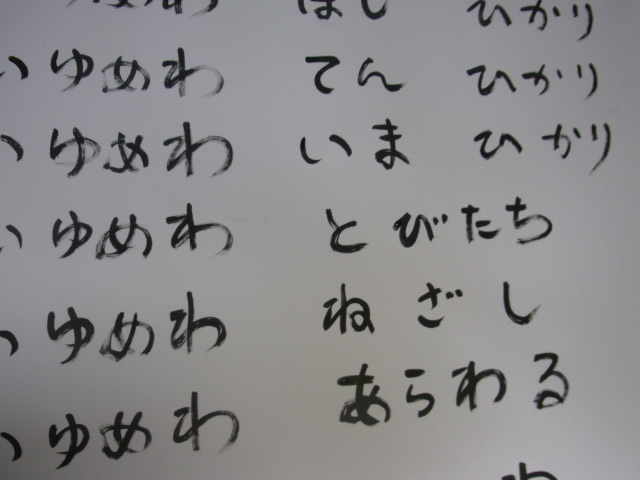 ゆめわ ほし ひかり
い ゆめわ てん ひかり
い ゆめわ いま ひかり
い ゆめわ とびたち
い ゆめわ ねざし
い ゆめわ あらわる